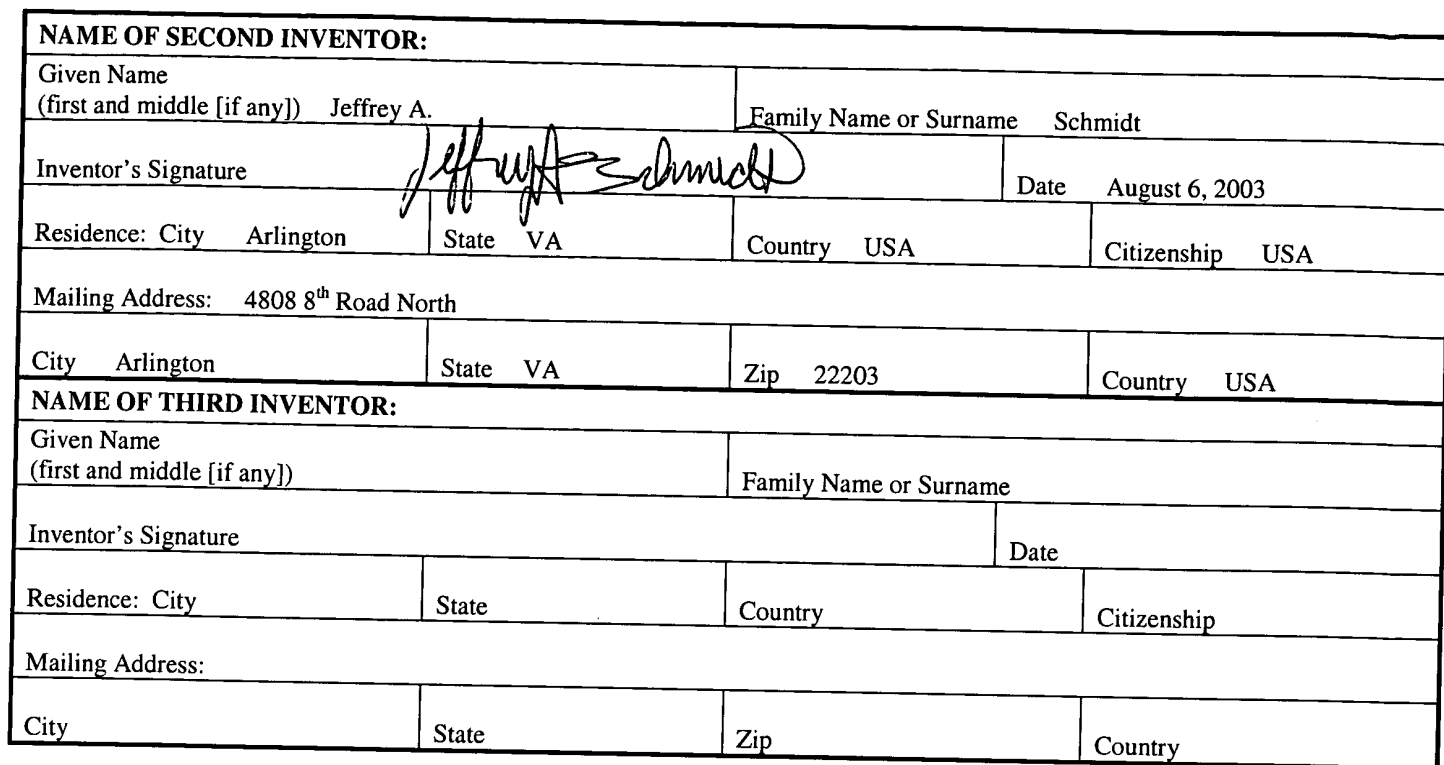 NAME OF SECOND INVENTOR:
Given Name
(first and middle [if any]) Jeffrey A.
Family Name or Surname Schmidt
Inventor's Signature Jeffrey A Schmidt
Date August 6, 2003
Residence: City Arlington State VA Country USA Citizenship USA
Mailing Address: 4808 8th Road North
City Arlington State VA Zip 22203 Country USA
NAME OF THIRD INVENTOR:
Given Name
(first and middle [if any])
Family Name or Surname
Inventor's Signature Date
Residence: City State Country Citizenship
Mailing Address:
City State Zip Country